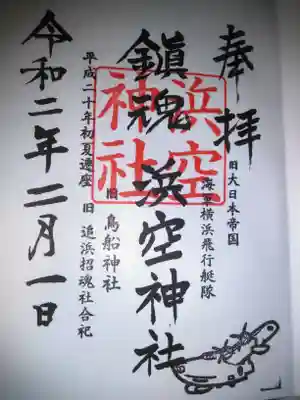 奉拝
旧大日本帝国
海軍横浜飛行艇隊
鎭魂 浜空神社
浜空
神社
旧 鳥船神社
平成二十年初夏遷座 旧 追浜招魂社合祀
令和二年二月一日